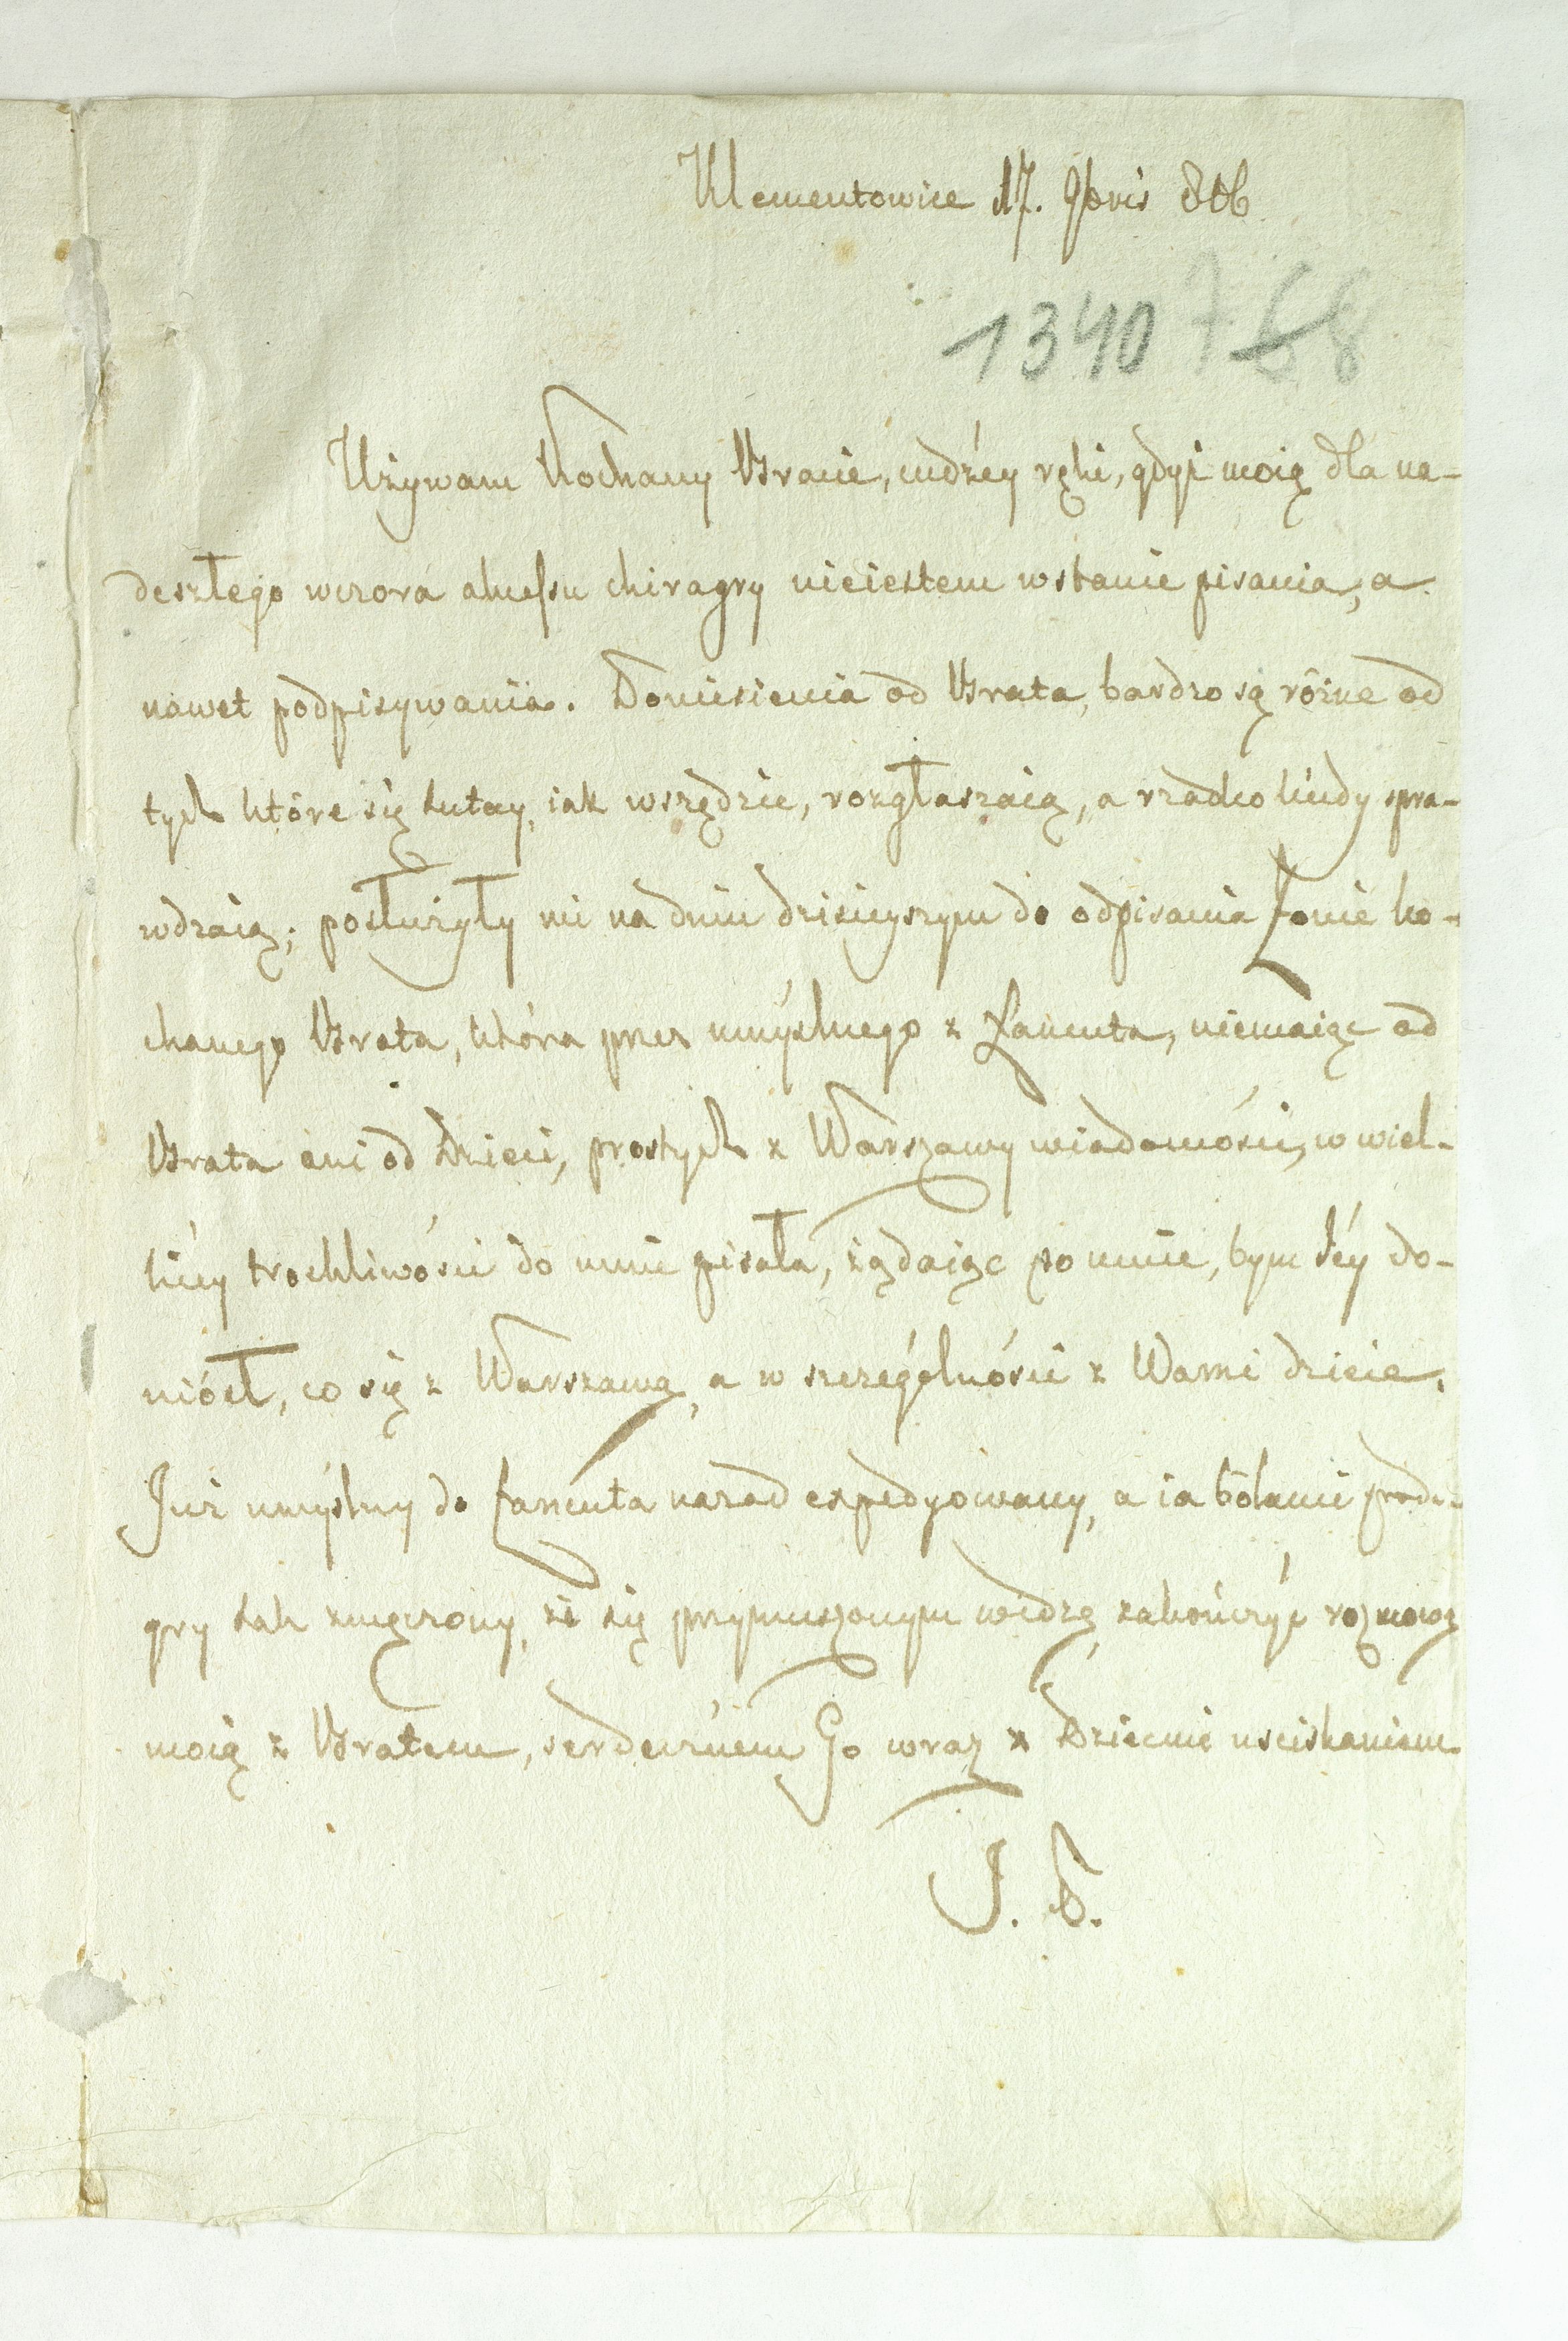 Klementowice 17. 9bris 806
1340 768
Używam Kochany Bracie, cudzéy ręki, gdyż moią dla na-
deszłego wczora aksessu chiragry nieiestem wstanie pisania, a
nawet podpisywania. Doniesienia od Brata, bardzo są różne od
tych które się tutay, iak wszędzie, rozgłaszaią, a rzadko kiedy spra-
wdzaią; posłużyły mi na dniu dzisieyszym do odpisania Żonie ko-
chanego Brata, która przez umyślnego z Łańcuta, niemaiąc od
Brata ani od Dzieci, prostych z Warszawy wiadomości, w wiel-
kiey troskliwości do mnie pisała, żądaiąc po mnie, bym Jéy do-
niósł, co się z Warszawą, a w szczególności z Wami dzieie.
Już umyślny do Łańcuta nazad expedyowany, a ia bólami poda-
gry tak zmęczony, że się przymuszonym widzę zakończyć rozmowę
moią z Bratem, serdecznem Go wraz z Dziećmi usciskaniem.
J. P.